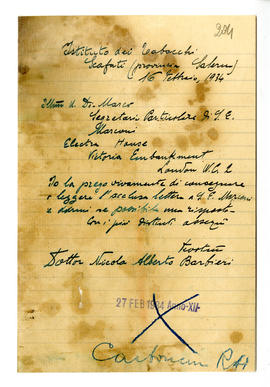 204
Istituto dei Tabacchi
Scafati (provincia Salerno)
16 Febbraio, 1934
Di Marco
Segretario Particolare di S.E.
Marconi
Electra House
Victoria Embankment
London W.C.2
Io La prego vivamente di consegnare
e leggere l'acclusa lettera a S.E. Marconi
e darmi se possibile una risposta
Con i più distinti ossequi
Dottor Nicola Alberto Barbieri
27 FEB 1934 Anno XII